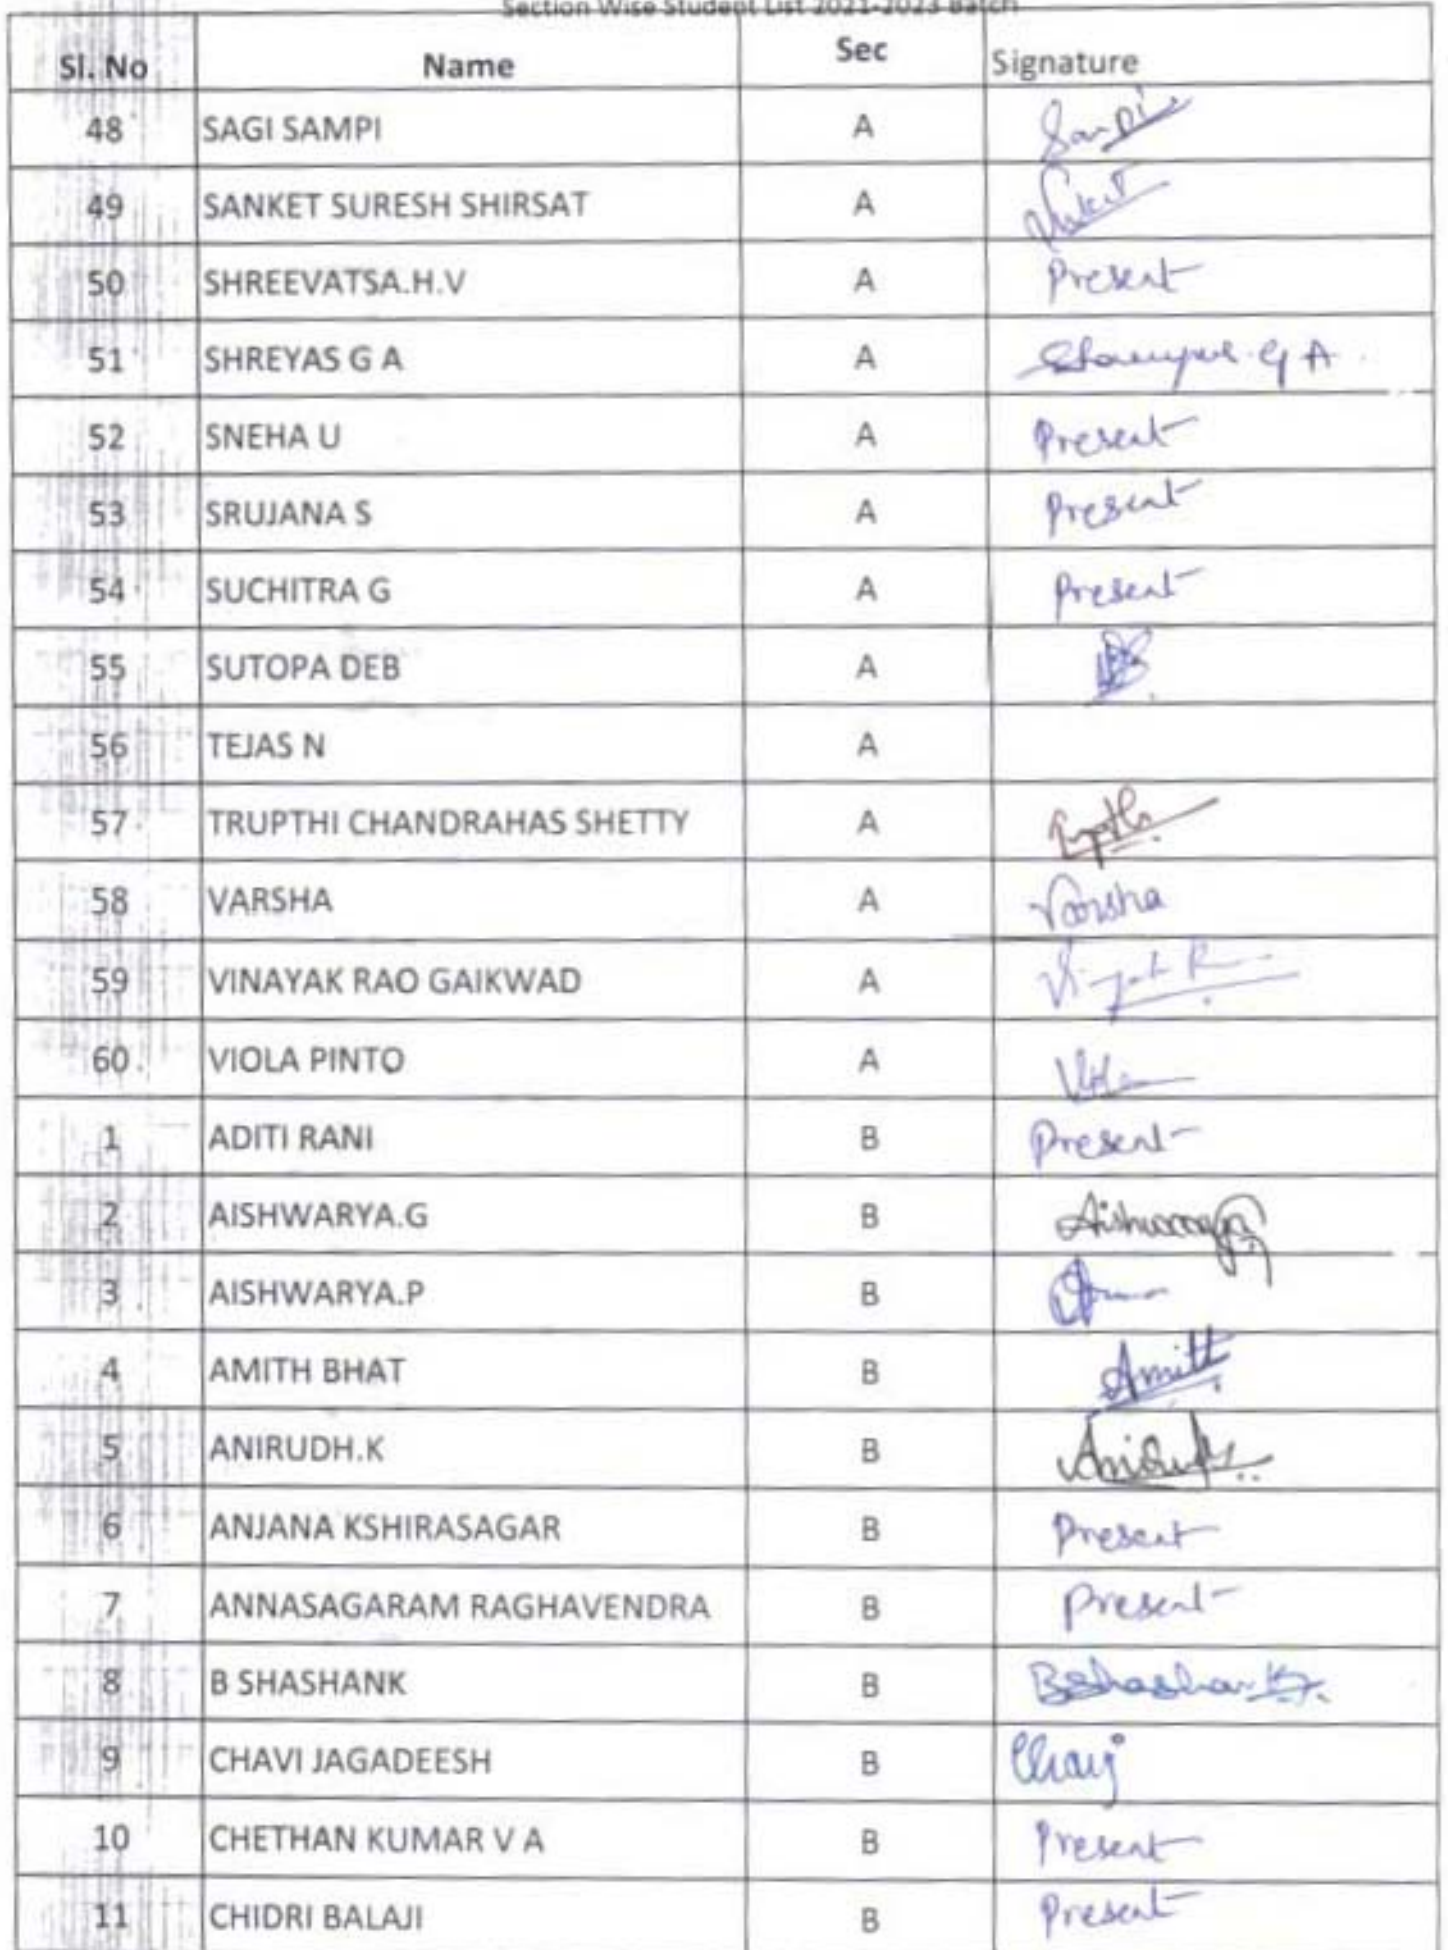 Section Wise Student List 2021-2023 Batch
Sl. No Name Sec Signature
48 SAGI SAMPI A Sampi
49 SANKET SURESH SHIRSAT A
50 SHREEVATSA.H.V A Present
51 SHREYAS G A A G A
52 SNEHA U A Present
53 SRUJANA S A Present
54 SUCHITRA G A Present
55 SUTOPA DEB A
56 TEJAS N A
57 TRUPTHI CHANDRAHAS SHETTY A
58 VARSHA A Varsha
59 VINAYAK RAO GAIKWAD A
60 VIOLA PINTO A
1 ADITI RANI B Present
2 AISHWARYA.G B Aishwarya
3 AISHWARYA.P B
4 AMITH BHAT B Amith
5 ANIRUDH.K B
6 ANJANA KSHIRASAGAR B Present
7 ANNASAGARAM RAGHAVENDRA B Present
8 B SHASHANK B BShashank
9 CHAVI JAGADEESH B Chavi
10 CHETHAN KUMAR V A B Present
11 CHIDRI BALAJI B Present